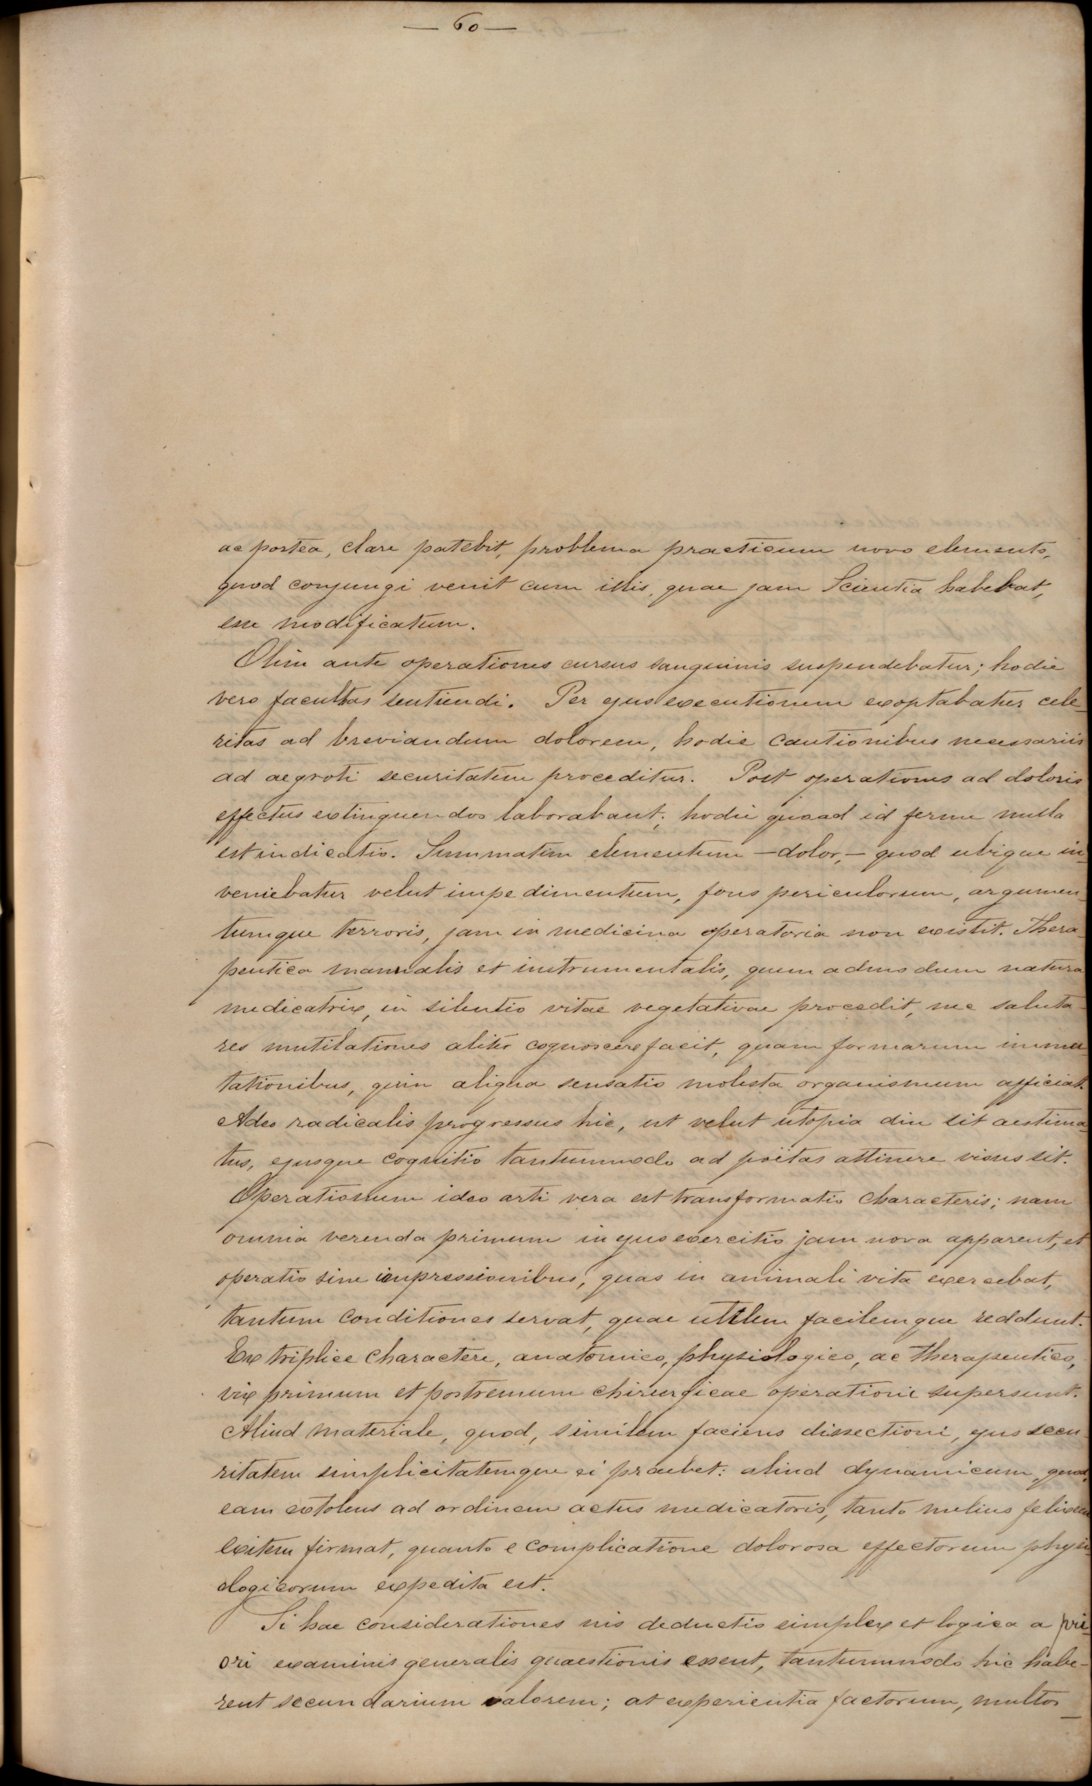 — 60 —
ac postea, clare patebit, problema practicum novo elemento,
quod conjungi venit cum illis, quae jam Scientia habebat,
esse modificatum.
Olim ante operationes cursus sanguinis suspendebatur; hodie
vero facultas sentiendi. Per ejus executionem exoptabatur cele-
ritas ad breviandum dolorem, hodie cautionibus necessariis
ad aegroti securitatem proceditur. Post operationes ad doloris
effectus extinguendos laborabant; hodie quoad id ferme nulla
est indicatio. Summatim elementum — dolor, — quod ubique in-
veniebatur velut impedimentum, fons periculorum, argumen-
tumque terroris, jam in medicina operatoria non existit. Thera-
peutica manualis et instrumentalis, quemadmodum natura
medicatrix, in silentio vitae vegetativae procedit, nec saluta-
res mutilationes aliter cognoscere facit, quam formarum immu-
tationibus, quin aliqua sensatio molesta organismum afficiat.
Adeo radicalis progressus hic, ut velut utopia diu sit aestima-
tus, ejusque cognitio tantummodo ad poëtas attinere visus sit.
Operationum ideo arti vera est transformatio characteris; nam
omnia verenda primum in ejus exercitio jam nova apparent, et
operatio sine impressionibus, quas in animali vita exercebat,
tantum conditiones servat, quae utilem facilemque reddunt.
Ex triplice charactere, anatomico, physiologico, ac therapeutico,
vix primum et postremum chirurgicae operationi supersunt.
Aliud materiale, quod, similem faciens dissectioni, ejus secu-
ritatem simplicitatemque ei praebet: aliud dynamicum, quod,
eam extolens ad ordinem actus medicatoris, tanto melius felicem
exitum firmat, quanto e complicatione dolorosa effectorum physi-
ologicorum expedita est.
Si hae considerationes nis deductio simplex et logica a pri-
ori examinis generalis quaestionis essent, tantummodo hic habe-
rent secundarium valorem; at experientia factorum, multos